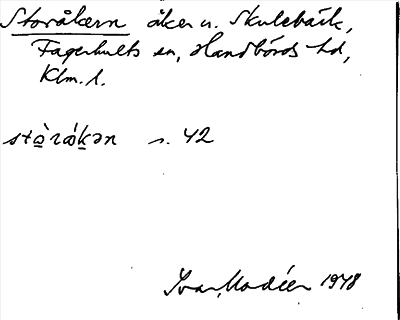 Storåkern åker u. Skulebäck,
Fagerhults sn, Handbörds hd,
Klm. l.
stòrǻkən s. 42
Ivar Modéer 1978